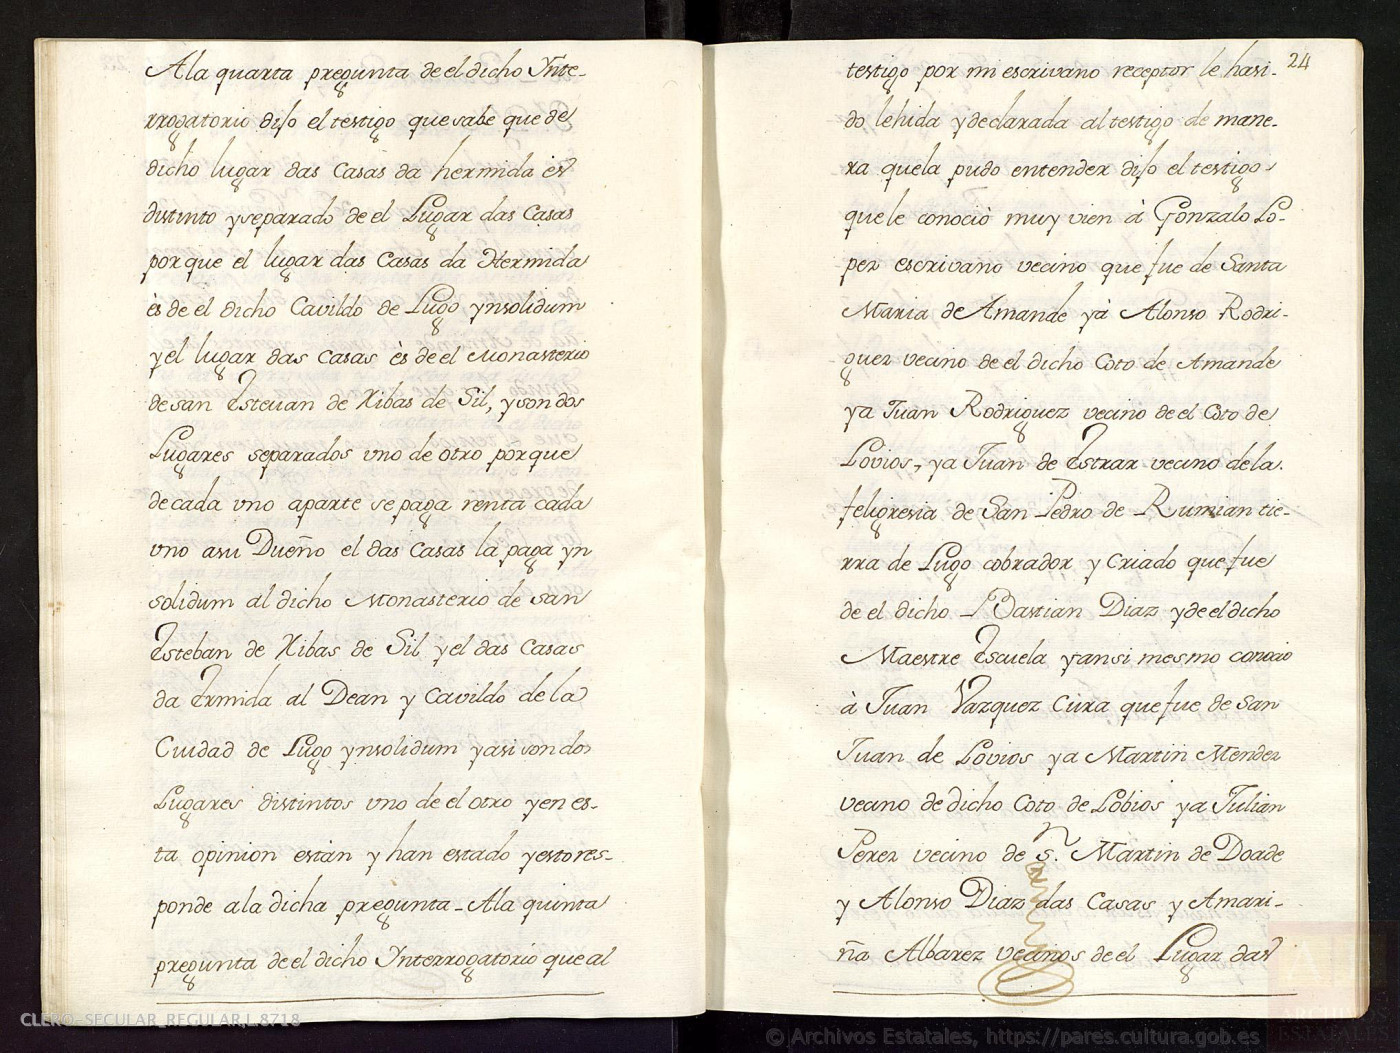 A la quarta pregunta de el dicho Ynte-
rrogatorio dijo el testigo que sabe que de
dicho lugar das Casas da hermida es
distinto y separado de el Lugar das Casas
porque el lugar das Casas da Hermida
ès de el dicho Cavildo de Lugo ynsolidum
y el lugar das Casas ès de el Monasterio
de san Estevan de Ribas de Sil, y son dos
Lugares separados uno de otro porque
de cada uno aparte se paga renta cada
uno a su Dueño el das Casas la paga yn
solidum al dicho Monasterio de san
Esteban de Ribas de Sil y el das Casas
da Ermida al Dean y Cavildo de la
Ciudad de Lugo ynsolidum y asi son dos
Lugares distintos uno de el otro y en es-
ta opinion estàn y han estado y esto res-
ponde a la dicha pregunta - A la quinta
pregunta de el dicho Ynterrogatorio que al
24
testigo por mi escrivano receptor le ha si-
do lehida y declarada al testigo de mane-
ra que la pudo entender dijo el testigo
que le conociò muy vien à Gonzalo Lo-
pez escrivano vecino que fue de Santa
Maria de Amande y à Alonso Rodri-
guez vecino de el dicho Coto de Amande
y a Juan Rodriguez vecino de el Coto de
Lovios, y a Juan de Estrar vecino de la
feligresia de San Pedro de Rumian tie-
rra de Lugo cobrador y criado que fue
de el dicho Bastian Diaz y de el dicho
Maestre Escuela y ansi mesmo conocio
à Juan Vazquez Cura que fue de San
Juan de Lovios y a Martin Mendez
vecino de dicho Coto de Lobios y a Julian
Perez vecino de s.n Martin de Doade
y Alonso Diaz das Casas y Amari-
ña Albarez vecinos de el Lugar das
CLERO-SECULAR_REGULAR,L_8718
© Archivos Estatales, https://pares.cultura.gob.es
ARCHIVOS
ESTATALES